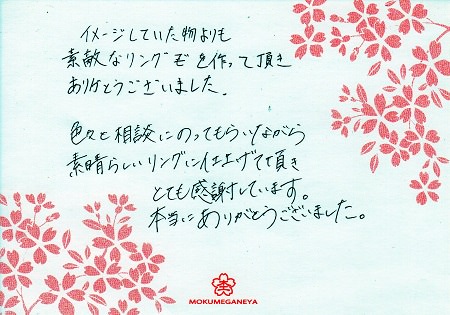 イメージしていた物よりも
素敵なリングを作って頂き
ありがとうございました。
色々と相談にのってもらいながら
素晴らしいリングに仕上げて頂き
とても感謝しています。
本当にありがとうございました。
MOKUMEGANEYA